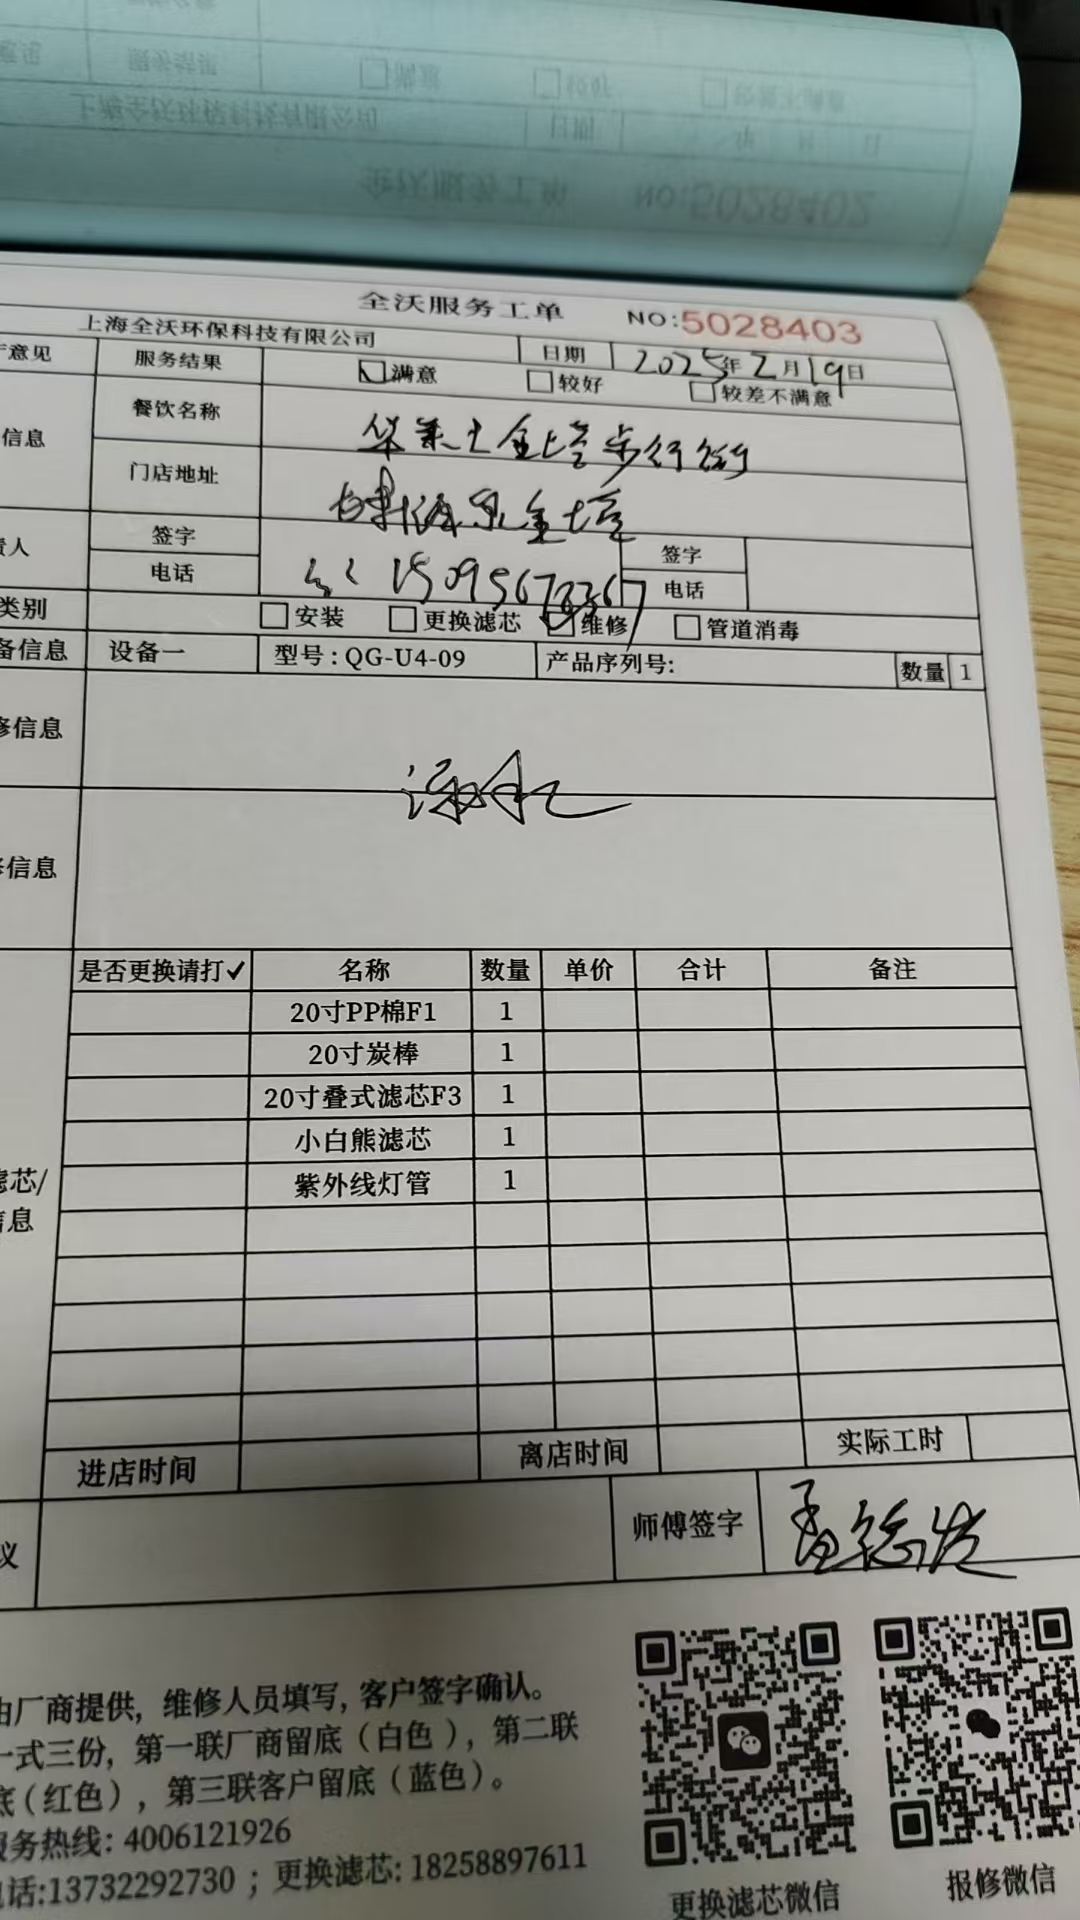 全沃服务工单 NO:5028403
上海全沃环保科技有限公司 日期 2025年2月19日
意见 服务结果 满意 较好 较差不满意
信息 餐饮名称 华莱士金塔步行街
门店地址 金塔
责人 签字 签字
电话 电话
类别 安装 更换滤芯 维修 管道消毒
备信息 设备一 型号:QG-U4-09 产品序列号: 数量 1
修信息
漏水
信息
是否更换请打✓ 名称 数量 单价 合计 备注
20寸PP棉F1 1
20寸炭棒 1
20寸叠式滤芯F3 1
小白熊滤芯 1
滤芯/ 紫外线灯管 1
信息
进店时间 离店时间 实际工时
议 师傅签字
由厂商提供, 维修人员填写, 客户签字确认。
一式三份, 第一联厂商留底（白色）, 第二联
底（红色）, 第三联客户留底（蓝色）。
服务热线: 4006121926
电话:13732292730 ; 更换滤芯: 18258897611
更换滤芯微信 报修微信